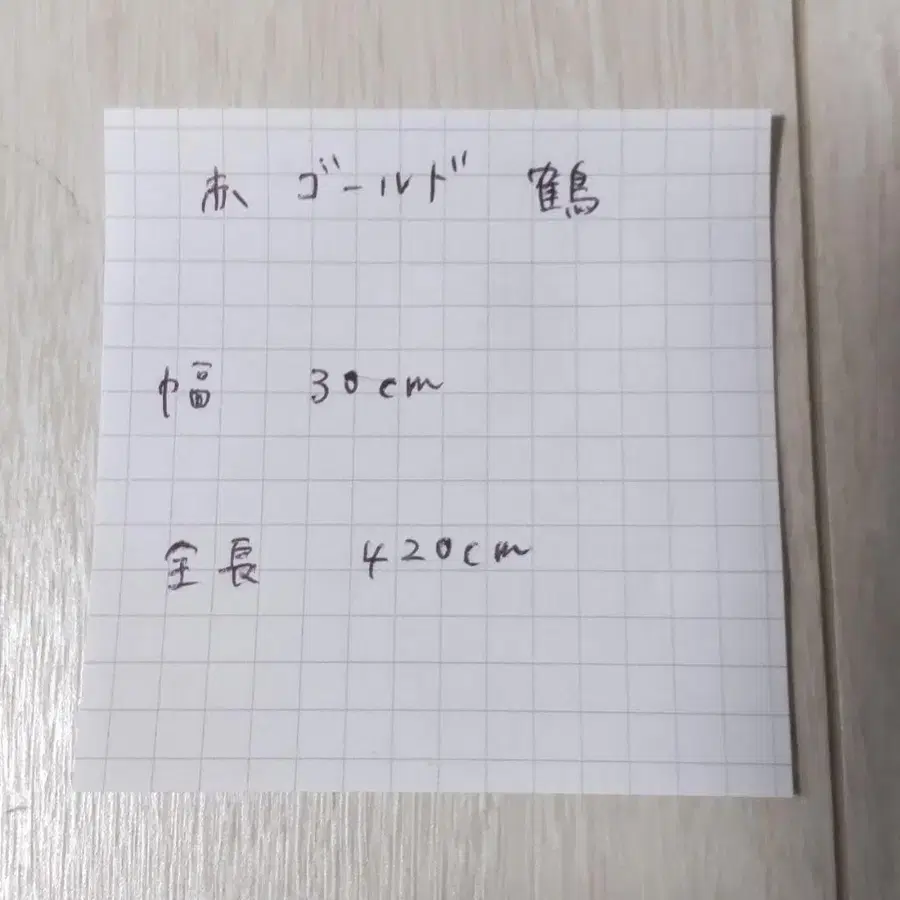 赤 ゴールド 鶴
幅 30cm
全長 420cm